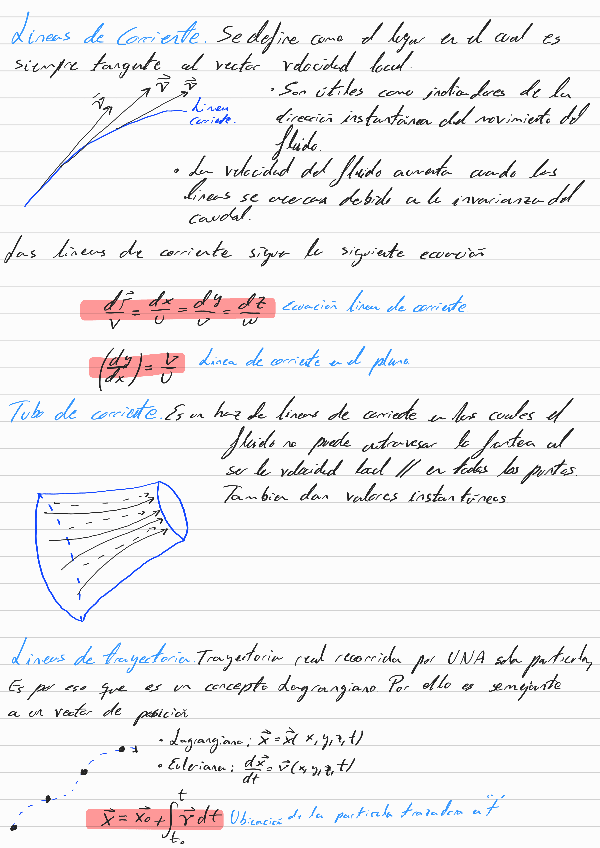 Lineas de Corriente. Se define como el lugar en el cual es
siempre tangente al vector velocidad local.
v⃗ v⃗ v⃗
Linea
corriente.
• Son útiles como indicadores de la
dirección instantánea del movimiento del
fluido.
• La velocidad del fluido aumenta cuando las
lineas se acercan debido a la invarianza del
caudal.
Las lineas de corriente sigue la siguiente ecuación
dr⃗/V = dx/U = dy/v = dz/w Ecuación linea de corriente
(dy/dx) = V/U Linea de corriente en el plano
Tubo de corriente. Es un haz de lineas de corriente en las cuales el
fluido no puede atravesar la frontera al
ser la velocidad local // en todos los puntos.
Tambien dan valores instantáneos
Lineas de trayectoria. Trayectoria real recorrida por UNA sola particula,
Es por eso que es un concepto Lagrangiano Por ello es semejante
a un vector de posición
• Lagrangiano: x⃗ = x⃗(x, y, z, t)
• Euleriano: dx⃗/dt = v⃗(x, y, z, t)
x⃗ = x⃗₀ + ∫ₜ₀ᵗ v⃗ dt Ubicación de la particula trazadora a "t"